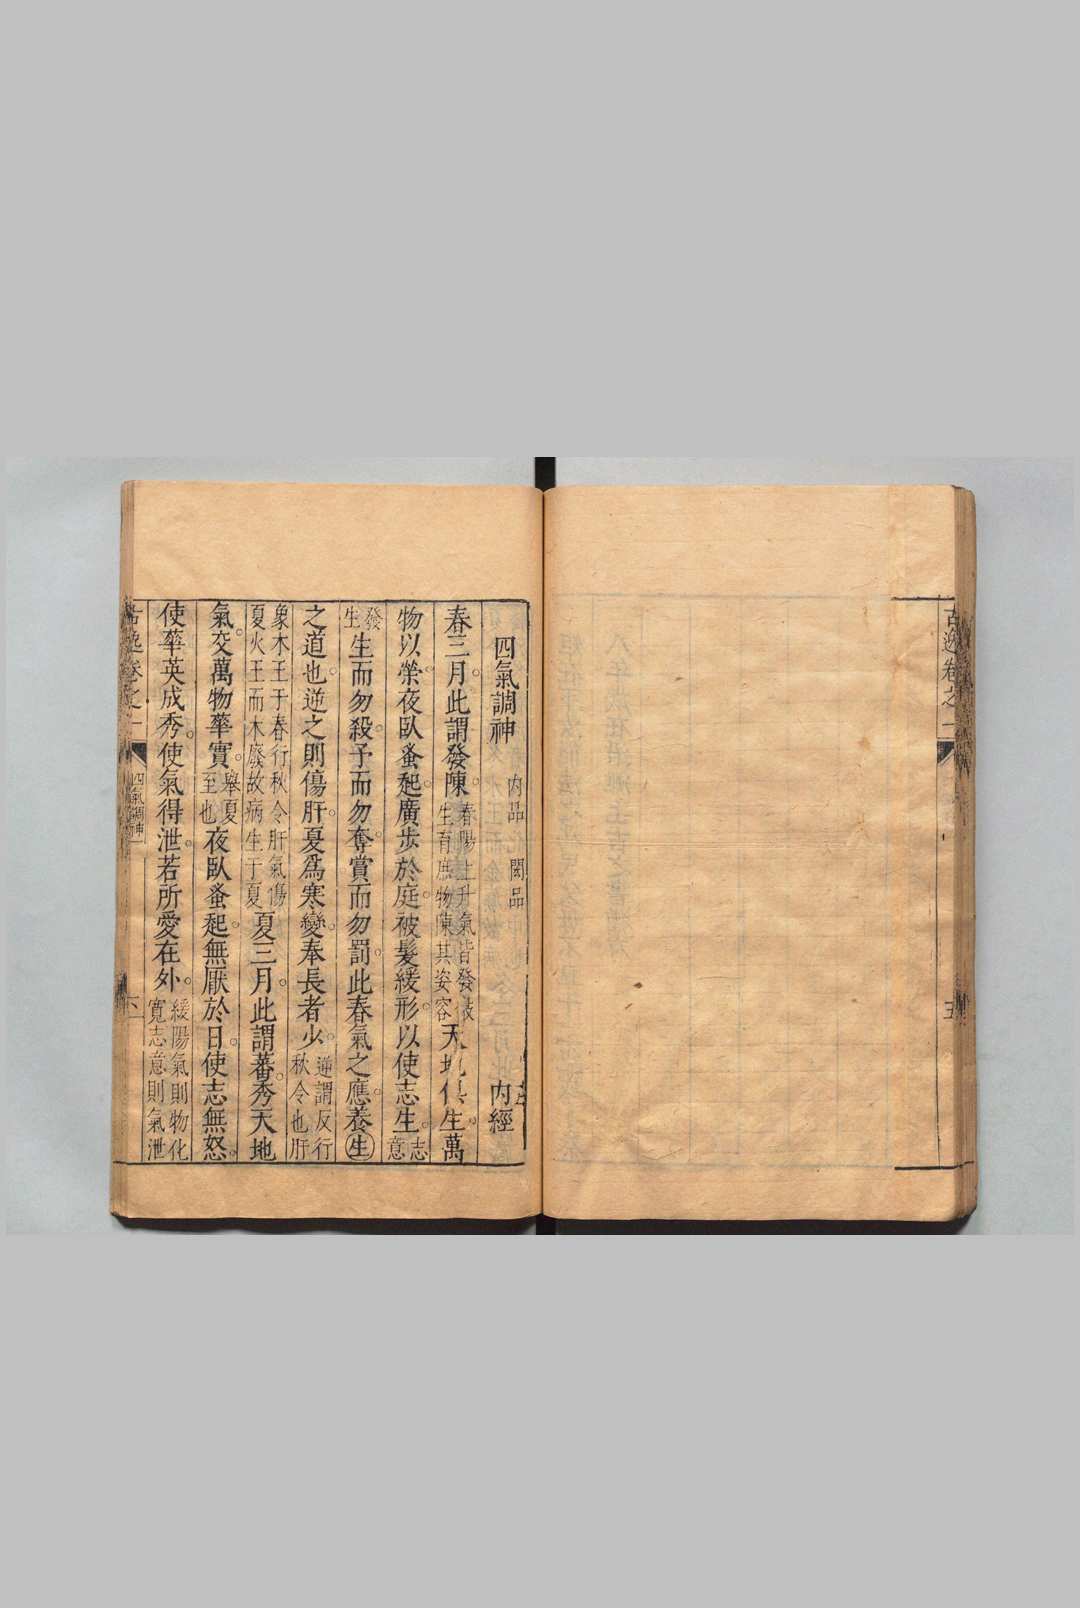 古逸卷之一
五
四氣調神 內品 閎品 內經
春三月。此謂發陳。春陽上升氣皆發生育庶物陳其姿容天地俱生。萬
物以榮。夜臥蚤起。廣步於庭。被髮緩形。以使志生。志意
發生生而勿殺。予而勿奪。賞而勿罰。此春氣之應。養生
之道也。逆之則傷肝。夏爲寒變。奉長者少。逆謂反行秋令也肝
象木王于春行秋令肝氣傷夏火王而木廢故病生于夏夏三月。此謂蕃秀。天地
氣。交萬物華實。舉夏至也夜臥蚤起。無厭於日。使志無怒。
使華英成秀。使氣得泄。若所愛在外。緩陽氣則物化寬志意則氣泄
古逸卷之一 四氣調神 六